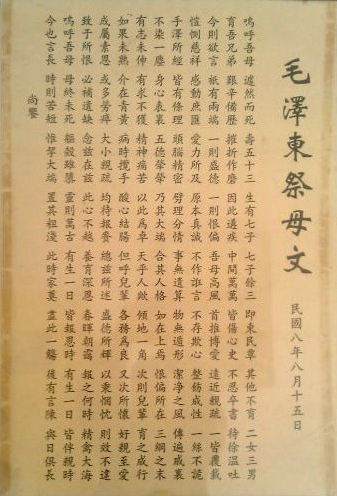 毛澤東祭母文
民國八年八月十五日
嗚呼吾母 遽然而死 壽五十三 生有七子 七子餘三 即東民覃 其他不育 二女三男
育吾兄弟 艱辛備歷 摧折作磨 因此遘疾 中間萬萬 皆傷心史 不忍卒書 待徐溫吐
今則欲言 祇有兩端 一則盛德 一則恨偏 吾母高風 首推博愛 遠近親疏 一皆覆載
愷惻慈祥 感動庶匯 愛力所及 原本真誠 不作誑言 不存欺心 整飭成性 一絲不詭
手澤所經 皆有條理 頭腦精密 劈理分情 事無遺算 物無遁形 潔淨之風 傳遍戚裏
不染一塵 身心表裏 五德犖犖 乃其大端 合其人格 如在上焉 恨偏所在 三綱之末
有志未伸 有求不獲 精神痛苦 以此為卓 天乎人歟 傾地一角 次則兒輩 育之成行
如果未熟 介在青黃 病時攬手 酸心結腸 但呼兒輩 各務為良 又次所懷 好親至愛
或屬素恩 或多勞瘁 大小親疏 均待報賚 總茲所述 盛德所輝 以秉悃忱 則效不違
致于所恨 必補遺缺 念茲在茲 此心不越 養育深恩 春暉朝靄 報之何時 精禽大海
嗚呼吾母 母終未死 軀殼雖隳 靈則萬古 有生一日 皆報恩時 有生一日 皆伴親時
今也言長 時則苦短 惟挈大端 置其粗淺 此時家奠 盡此一觴 後有言陳 與日俱長
尚饗